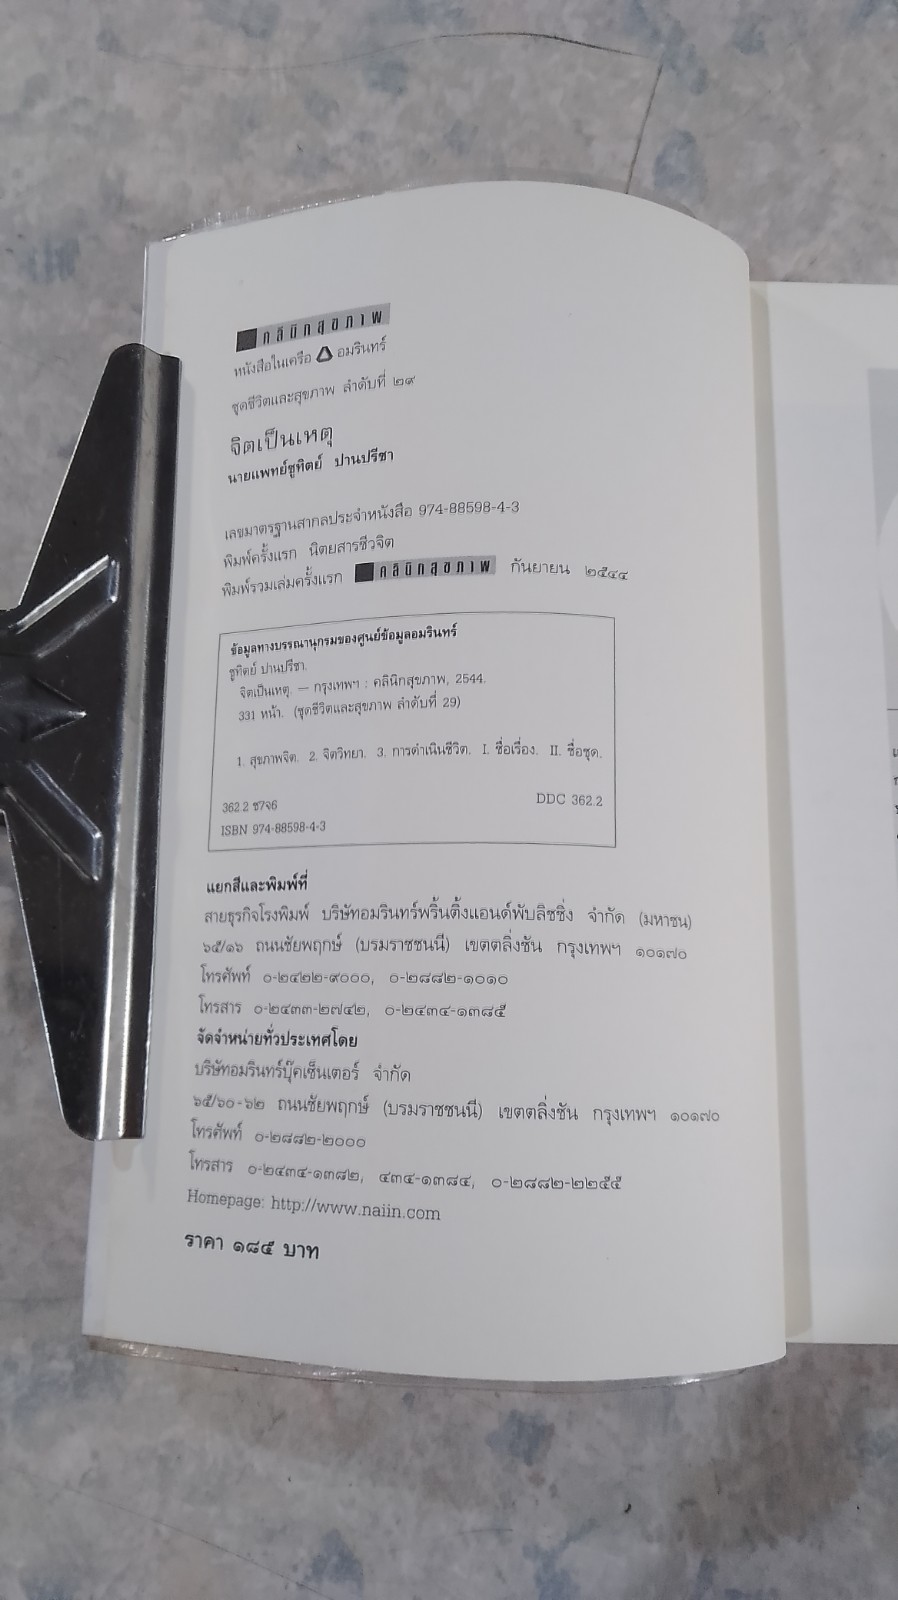 คลินิกสุขภาพ
หนังสือในเครือ อมรินทร์
ชุดชีวิตและสุขภาพ ลำดับที่ ๒๙
จิตเป็นเหตุ
นายแพทย์ชูทิตย์ ปานปรีชา
เลขมาตรฐานสากลประจำหนังสือ 974-88598-4-3
พิมพ์ครั้งแรก นิตยสารชีวจิต
พิมพ์รวมเล่มครั้งแรก คลินิกสุขภาพ กันยายน ๒๕๔๔
ข้อมูลทางบรรณานุกรมของศูนย์ข้อมูลอมรินทร์
ชูทิตย์ ปานปรีชา.
จิตเป็นเหตุ. — กรุงเทพฯ : คลินิกสุขภาพ, 2544.
331 หน้า. (ชุดชีวิตและสุขภาพ ลำดับที่ 29)
1. สุขภาพจิต. 2. จิตวิทยา. 3. การดำเนินชีวิต. I. ชื่อเรื่อง. II. ชื่อชุด.
362.2 ช7จ6 DDC 362.2
ISBN 974-88598-4-3
แยกสีและพิมพ์ที่
สายธุรกิจโรงพิมพ์ บริษัทอมรินทร์พริ้นติ้งแอนด์พับลิชชิ่ง จำกัด (มหาชน)
๖๕/๑๖ ถนนชัยพฤกษ์ (บรมราชชนนี) เขตตลิ่งชัน กรุงเทพฯ ๑๐๑๗๐
โทรศัพท์ ๐-๒๔๒๒-๙๐๐๐, ๐-๒๘๘๒-๑๐๑๐
โทรสาร ๐-๒๔๓๓-๒๗๔๒, ๐-๒๔๓๔-๑๓๘๕
จัดจำหน่ายทั่วประเทศโดย
บริษัทอมรินทร์บุ๊คเซ็นเตอร์ จำกัด
๖๕/๖๐-๖๒ ถนนชัยพฤกษ์ (บรมราชชนนี) เขตตลิ่งชัน กรุงเทพฯ ๑๐๑๗๐
โทรศัพท์ ๐-๒๘๘๒-๒๐๐๐
โทรสาร ๐-๒๔๓๔-๑๓๘๒, ๔๓๔-๑๓๘๔, ๐-๒๘๘๒-๒๒๕๕
Homepage: http://www.naiin.com
ราคา ๑๘๕ บาท